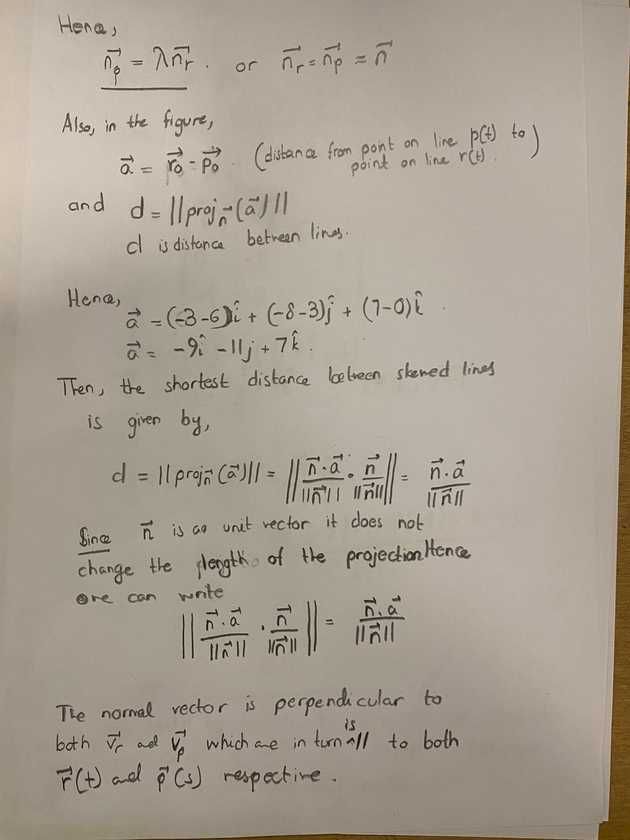 Hence,
n⃗_p = λn⃗_r . or n⃗_r = n⃗_p = n⃗
Also, in the figure,
a⃗ = r⃗_0 - p⃗_0 . (distance from point on line p(t) to
point on line r(t).)
and d = ||proj_n⃗(a⃗)||
d is distance between lines.
Hence,
a⃗ = (-3-6)î + (-8-3)ĵ + (7-0)k̂ .
a⃗ = -9î -11j + 7k̂ .
Then, the shortest distance between skewed lines
is given by,
d = ||proj_n⃗(a⃗)|| = || (n⃗·a⃗)/||n⃗|| · n⃗/||n⃗|| || = (n⃗·a⃗)/||n⃗||
Since n⃗ is a unit vector it does not
change the length of the projection Hence
one can write
|| (n⃗·a⃗)/||n⃗|| · n⃗/||n⃗|| || = (n⃗·a⃗)/||n⃗||
The normal vector is perpendicular to
both v⃗_r and v⃗_p which are in turn is || to both
r⃗(t) and p⃗(s) respective.